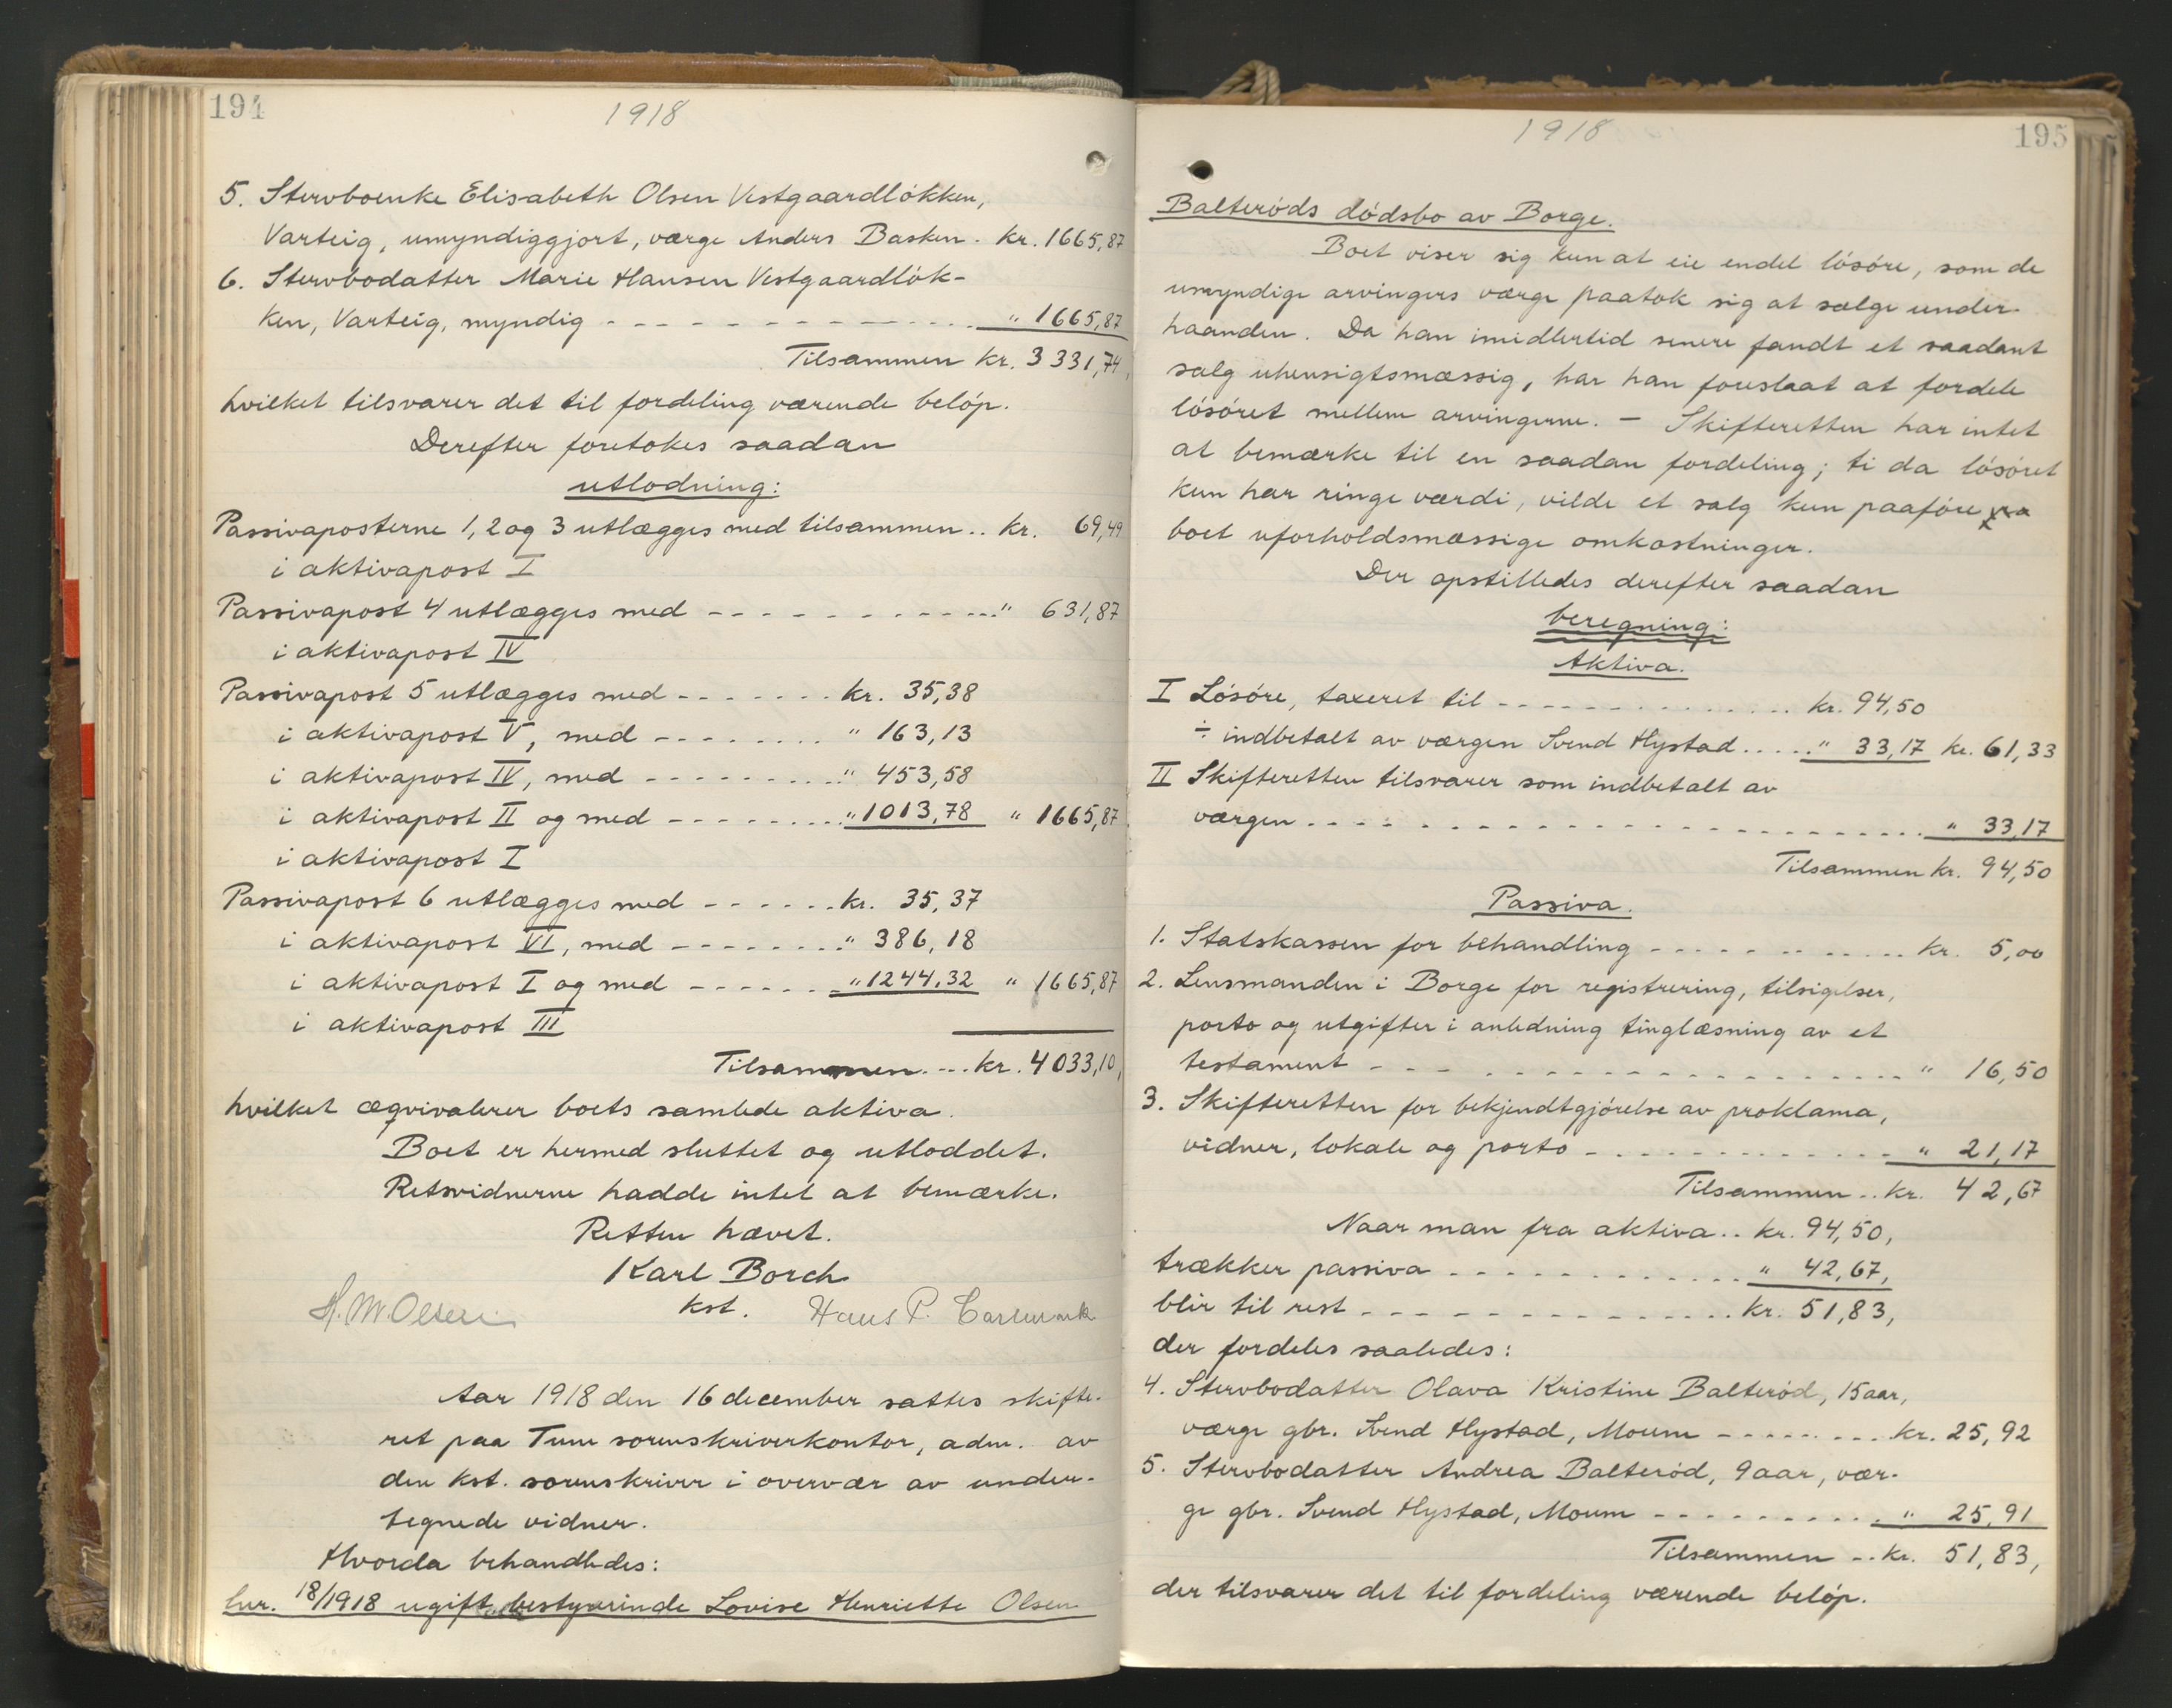 194
1918
5. Stervboenke Elisabeth Olsen Vestgaardløkken,
Varteig, umyndiggjort, værge Anders Basken. kr. 1665,87
6. Stervbodatter Marie Hansen Vestgaardløk-
ken, Varteig, myndig - - - - - - - - - " 1665,87
Tilsammen kr. 3331,74,
hvilket tilsvarer det til fordeling værende beløp.
Derefter foretokes saadan
utlodning:
Passivaposterne 1, 2 og 3 utlægges med tilsammen .. kr. 69,49
i aktivapost I
Passivapost 4 utlægges med - - - - - - - - " 631,87
i aktivapost IV
Passivapost 5 utlægges med - - - - - - kr. 35,38
i aktivapost V, med - - - - - - - " 163,13
i aktivapost IV, med - - - - - - - " 453,58
i aktivapost II og med - - - - - - - " 1013,78 " 1665,87
i aktivapost I
Passivapost 6 utlægges med - - - - - kr. 35,37
i aktivapost VI, med - - - - - - - " 386,18
i aktivapost I og med - - - - - - " 1244,32 " 1665,87
i aktivapost III
Tilsammen - - - kr. 4033,10,
hvilket æqvivalerer boets samlede aktiva.
Boet er hermed sluttet og utloddet.
Retsvidnerne hadde intet at bemærke.
Retten hævet.
Karl Borch
kst.
H. M. Olsen Hans P.
Aar 1918 den 16 december sattes skifte-
ret paa Tune sorenskriverkontor, adm. av
den kst. sorenskriver i overvær av under-
tegnede vidner.
Hvorda behandledes:
Lnr. 18/1918 ugift bestyrerinde Lovise Henriette Olsen
1918
195
Balterøds dødsbo av Borge.
Boet viser sig kun at eie endel løsøre, som de
umyndige arvingers værge paatok sig at sælge under-
haanden. Da han imidlertid senere fandt et saadant
salg uhensigtsmæssig, har han foreslaat at fordele
løsøret mellem arvingerne. - Skifteretten har intet
at bemærke til en saadan fordeling; ti da løsøret
kun har ringe værdi, vilde et salg kun paaføre
boet uforholdsmæssige omkostninger.
Der opstilledes derefter saadan
beregning:
Aktiva.
I Løsøre, taxeret til - - - - - - - - - kr. 94,50
÷ indbetalt av værgen Svend Hystad . . . . " 33,17 kr. 61,33
II Skifteretten tilsvarer som indbetalt av
værgen - - - - - - - - - - - - - - - - " 33,17
Tilsammen kr. 94,50
Passiva.
1. Statskassen for behandling - - - - - - - - kr. 5,00
2. Lensmanden i Borge for registrering, tilsigelser,
porto og utgifter i anledning tinglæsning av et
testament - - - - - - - - - - - - - - - " 16,50
3. Skifteretten for bekjendtgjørelse av proklama,
vidner, lokale og porto - - - - - - - - - " 21,17
Tilsammen .. kr. 42,67
Naar man fra aktiva .. kr. 94,50,
trækker passiva - - - - - - - - - " 42,67,
blir til rest - - - - - - - - - - - kr. 51,83,
der fordeles saaledes:
4. Stervbodatter Olava Kristine Balterød, 15 aar,
værge gbr. Svend Hystad, Moum - - - - - - kr. 25,92
5. Stervbodatter Andrea Balterød, 9 aar, vær-
ge gbr. Svend Hystad, Moum - - - - - - - " 25,91
Tilsammen - - kr. 51,83,
der tilsvarer det til fordeling værende beløp.